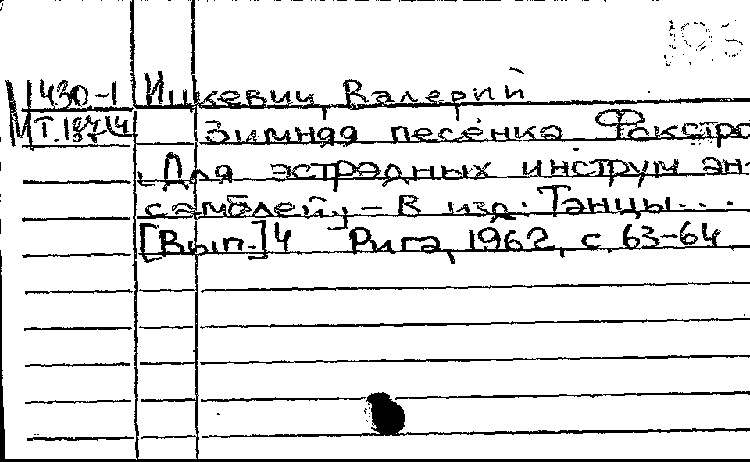 М 430-1 Ицкевич, Валерий
Т.187/4 Зимняя песенка Фокстро
[Для эстрадных инструм ан-
самблей] – В изд: Танцы...
[Вып.] 4 Рига, 1962, с 63-64